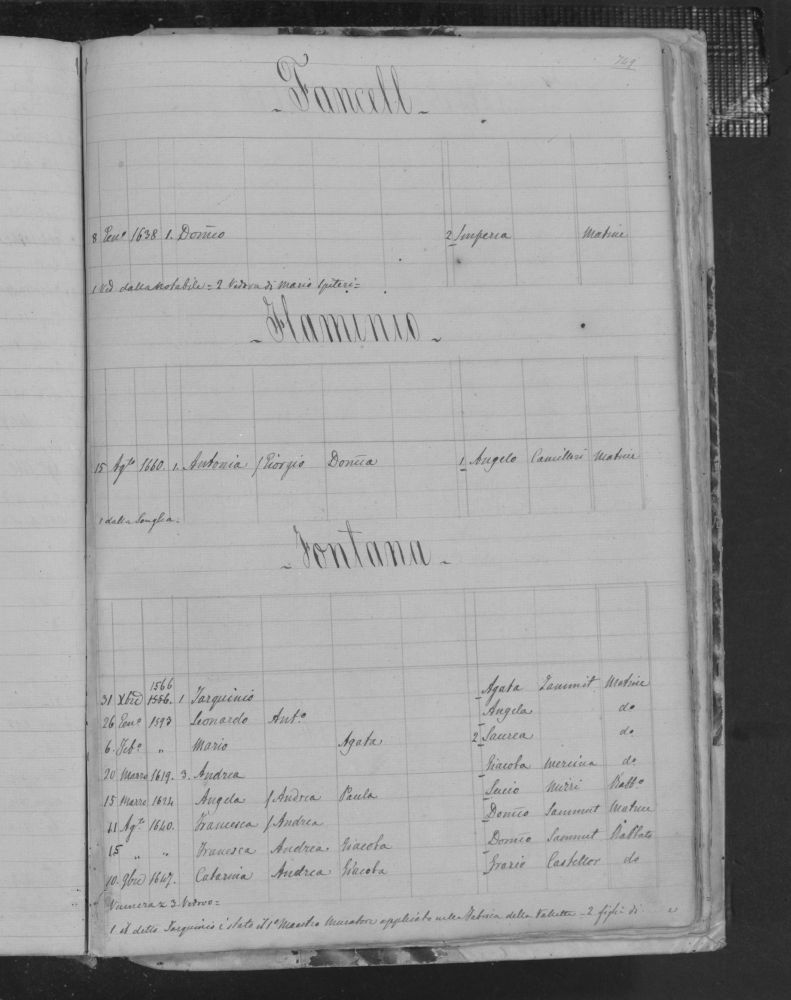 749
- Fancell -
8 Gen.º 1638 1. Domco 2 Imperia Matrice
1 Ved dalla Notabile = 2 Vedova di Mario Spiteri =
- Flaminio -
15 Ag.to 1660. 1. Antonia f Giorgio Domca 1 Angelo Camilleri Matrice
1 dalla Senglea.
- Fontana -
1566
31 Xbre 1556. 1 Tarquinio Agata Zammit Matrice
26 Gen.º 1593 Leonardo Ant.º Angela do
6. Feb.º " Mario Agata 2 Laurea do
20 Marzo 1619. 3. Andrea Giacoba Mercina do
15 Marzo 1624 Angela f Andrea Paula Lucio Mirri Rabb.º
11 Ag.to 1640. Francesca f Andrea Domco Sammut Matrice
15 " " Francesca Andrea Giacoba Domco Sammut Rabbato
10. 9bre 1647. Catarina Andrea Giacoba Grazio Castellor do
3 Vedovo =
1 il detto Tarquinio è stato il 1º Maestro Muratore applicato nella Fabrica della Valletta - 2 figli di